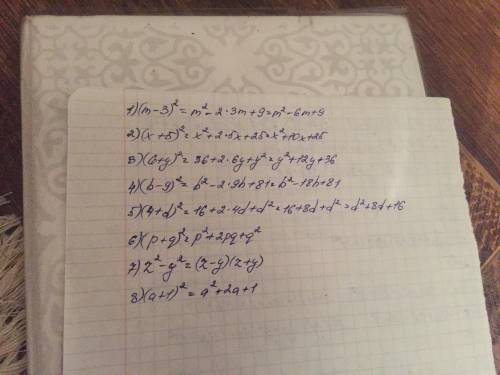 1) (m-3)² = m² - 2·3m+9 = m² - 6m+9
2) (x+5)² = x² + 2·5x+25 = x² + 10x+25
3) (6+y)² = 36+2·6y+y² = y² + 12y+36
4) (b-9)² = b² - 2·9b+81 = b² - 18b+81
5) (4+d)² = 16+2·4d+d² = 16+8d+d² = d²+8d+16
6) (p+q)² = p²+2pq+q²
7) z² - y² = (z-y)(z+y)
8) (a+1)² = a²+2a+1